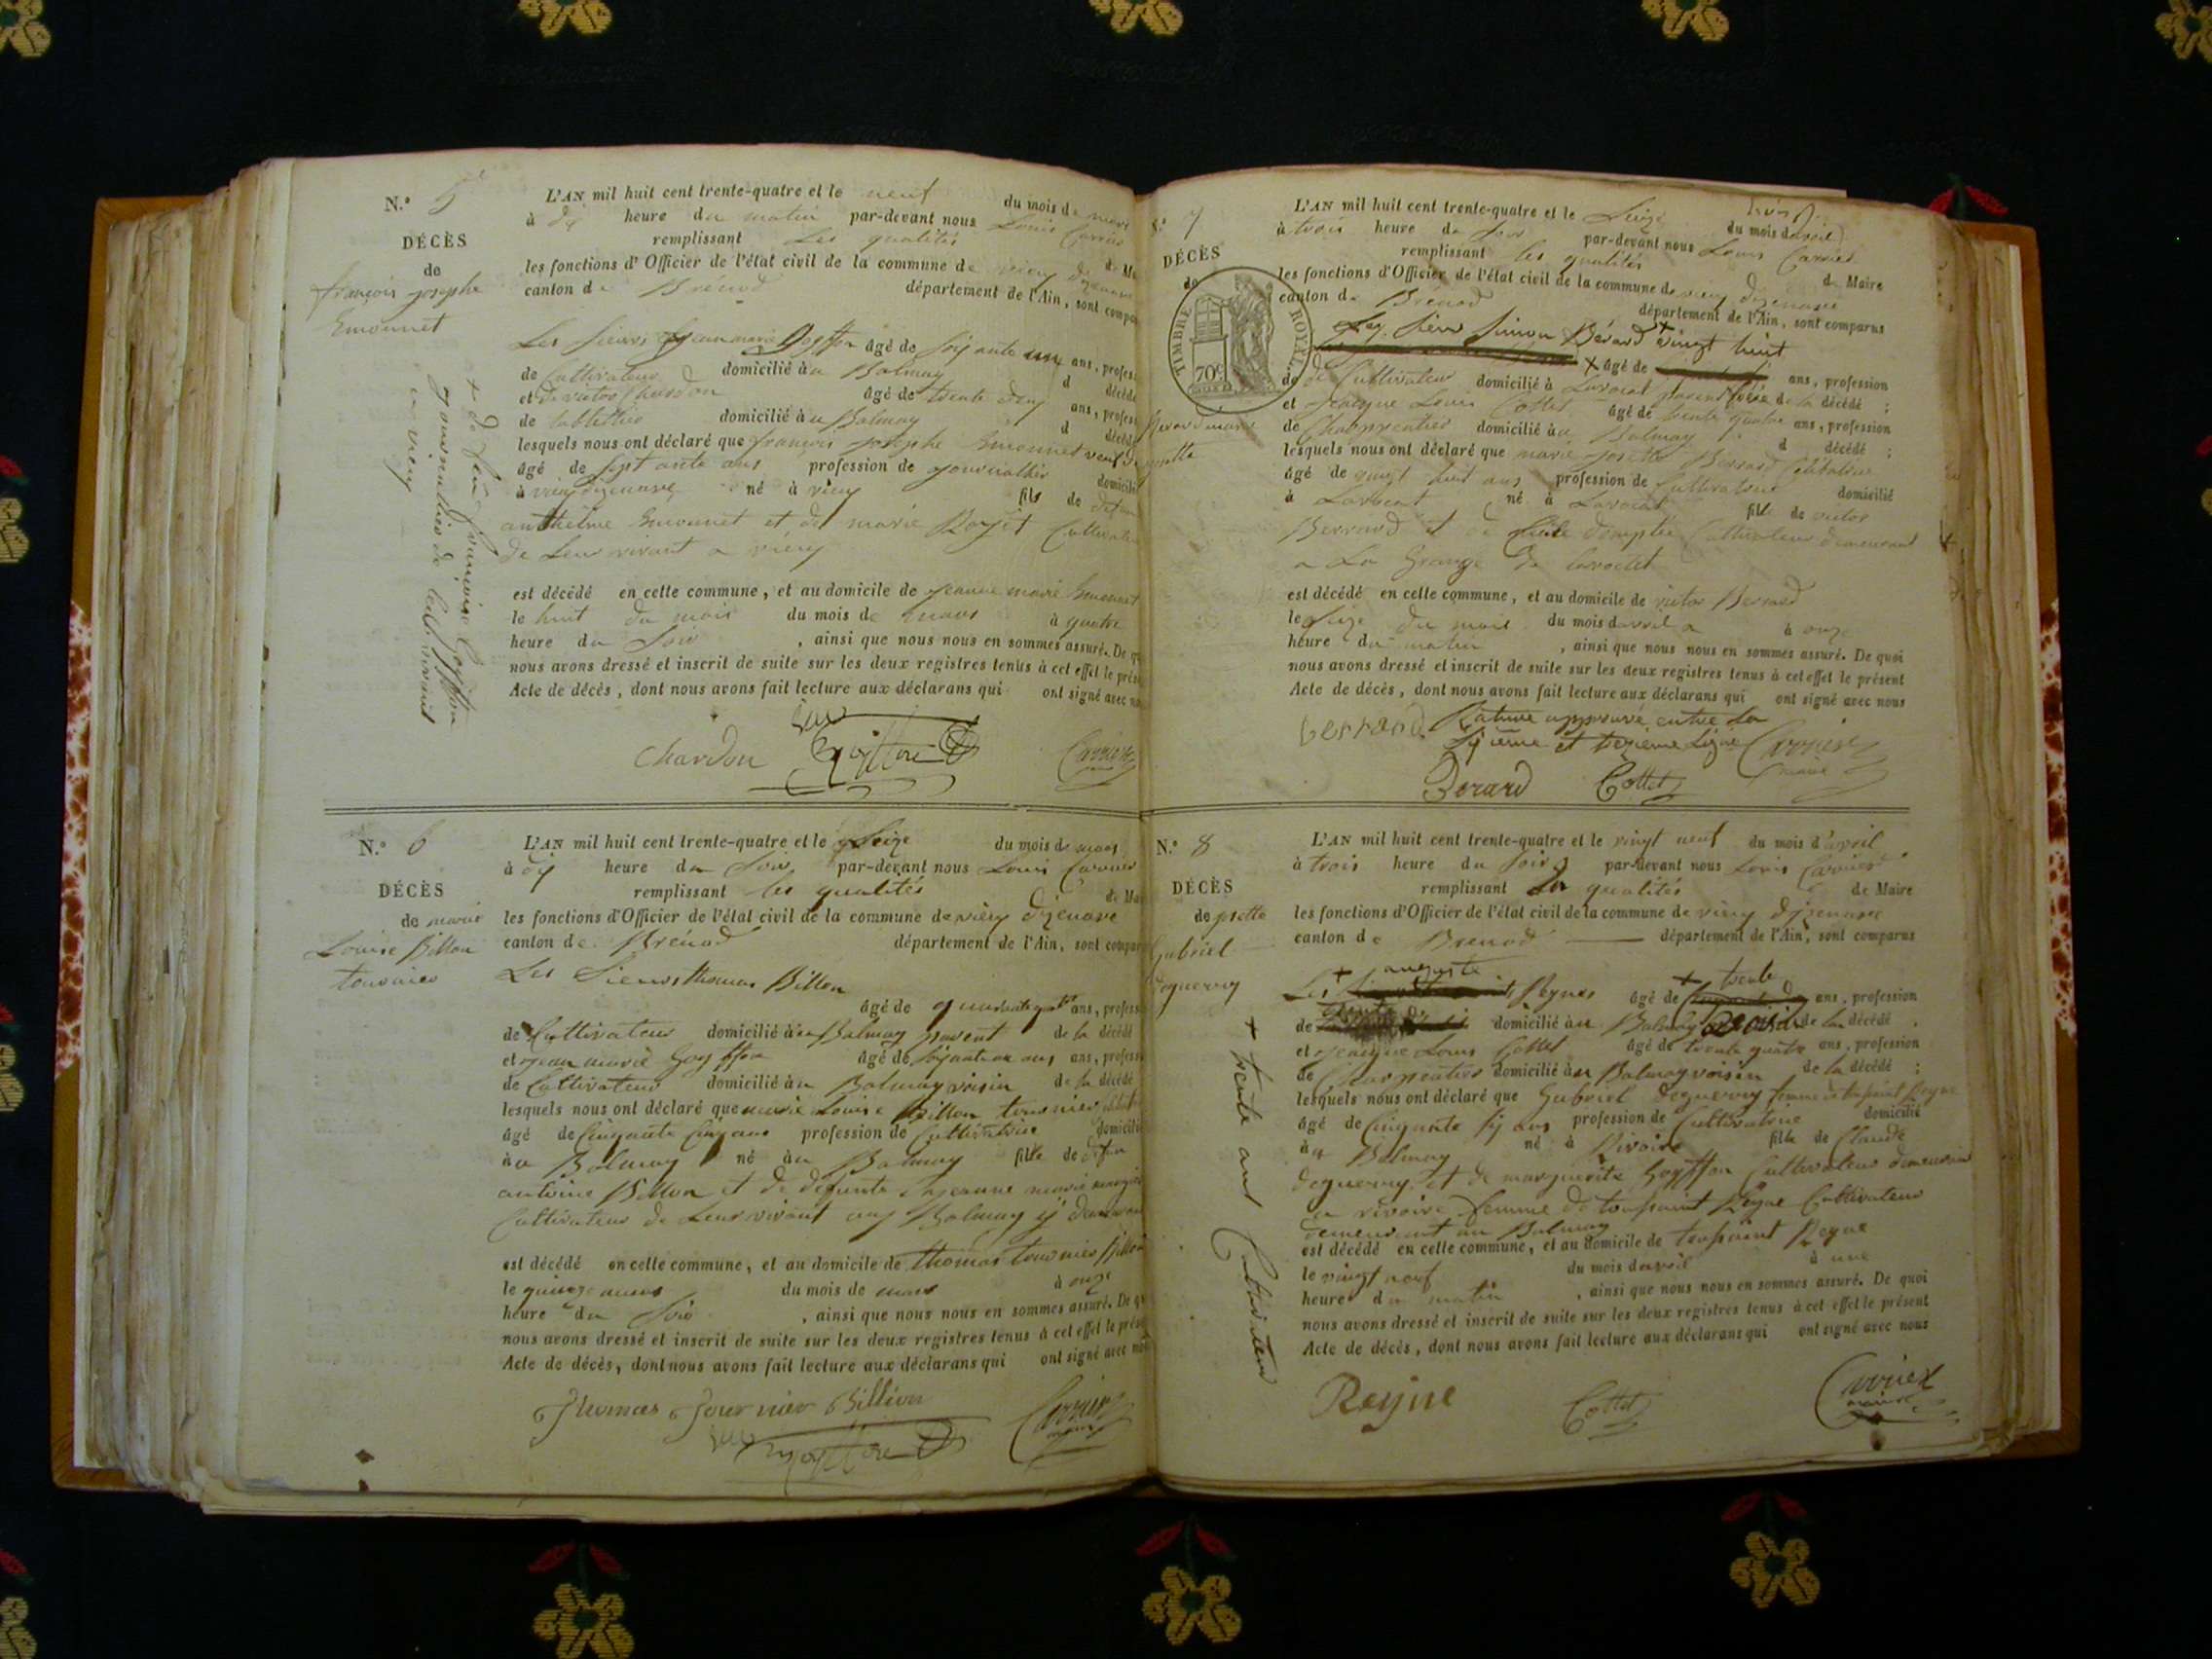 N.º 5
DÉCÈS
de
françois josephe
Emonnet
L'AN mil huit cent trente-quatre et le neuf du mois de mars
à dix heure du matin par-devant nous Louis Carrier
remplissant les qualités de
les fonctions d'Officier de l'état civil de la commune de vieu dizenave
canton de Brénod département de l'Ain, sont
Les Sieurs jean marie Goyffon âgé de soixante ans,
de Cultivateur domicilié au Balmay d
et de victor Chardon âgé de trente deux ans,
de domicilié au Balmay d
lesquels nous ont déclaré que françois josephe Emonnet veuf
âgé de septante ans profession de journallier
à vieu dizenave né à vieu fils de
anthelme Emonnet et de marie Cultivateur
de Leur vivant a vieu
+ de françoise Goyffon
journalier de leur vivant
a vieu
est décédé en cette commune, et au domicile de jeanne marie Emonnet
le huit du mois du mois de mars à quatre
heure du soir , ainsi que nous nous en sommes assuré. De
nous avons dressé et inscrit de suite sur les deux registres tenus à cet effet le
Acte de décès, dont nous avons fait lecture aux déclarans qui ont signé avec
Chardon Goiffon Carrier
N.º 6
DÉCÈS
de marie
Louise Billon
tournier
L'AN mil huit cent trente-quatre et le Seize du mois de mars
à dix heure du soir par-devant nous Louis Carrier
remplissant les qualités de
les fonctions d'Officier de l'état civil de la commune de vieu dizenave
canton de Brénod département de l'Ain, sont
Les Sieurs thomas Billon
âgé de ans,
de Cultivateur domicilié au Balmay parent de la décédé
et jean marie Goyffon âgé de ans,
de Cultivateur domicilié au Balmay voisin de la décédé
lesquels nous ont déclaré que marie Louise Billon tournier
âgé de Cinquante Cinq ans profession de Cultivatrice
à u Balmay né au Balmay fille de
antoine Billon et de défunte jeanne marie
Cultivateur de Leur vivant au Balmay
est décédé en cette commune, et au domicile de thomas tournier Billon
le quinze du mois de mars à onze
heure du soir , ainsi que nous nous en sommes assuré. De
nous avons dressé et inscrit de suite sur les deux registres tenus à cet effet le
Acte de décès, dont nous avons fait lecture aux déclarans qui ont signé avec
Thomas Tournier Billion Carrier
Goiffon
N.º 7
DÉCÈS
de
TIMBRE ROYAL
70c
L'AN mil huit cent trente-quatre et le Seize du mois d'avril
à trois heure du soir par-devant nous Louis Carrier
remplissant les qualités de Maire
les fonctions d'Officier de l'état civil de la commune de vieu dizenave
canton de Brénod département de l'Ain, sont comparus
Simon Bérard + vingt huit
+ âgé de ans, profession
de Cultivateur domicilié à parent de la décédé ;
et jacque Louis Cottet âgé de trente quatre ans, profession
de Charpentier domicilié au Balmay d décédé ;
lesquels nous ont déclaré que marie josette Berrard Célibataire
âgé de vingt huit ans profession de Cultivatrice domicilié
à né à fille de victor
Berrard et de Cultivateur demeurant
a La Grange de
est décédé en cette commune, et au domicile de victor Berrard
le Seize du mois du mois d'avril à onze
heure du matin , ainsi que nous nous en sommes assuré. De quoi
nous avons dressé et inscrit de suite sur les deux registres tenus à cet effet le présent
Acte de décès, dont nous avons fait lecture aux déclarans qui ont signé avec nous
berrard Rature approuvé entre La
Sixième et Ligne Carrier
maire
Berard Cottet
N.º 8
DÉCÈS
de josette
Gubriel
deguerry
L'AN mil huit cent trente-quatre et le vingt neuf du mois d'avril
à trois heure du soir par-devant nous Louis Carrier
remplissant Les qualités de Maire
les fonctions d'Officier de l'état civil de la commune de vieu dizenave
canton de Brenod département de l'Ain, sont comparus
+ auguste + trente
Les Reyne âgé de ans, profession
de domicilié au Balmay de la décédé ,
et jacque Louis Cottet âgé de trente quatre ans, profession
de Charpentier domicilié au Balmay voisin de la décédé ;
lesquels nous ont déclaré que Gubriel deguerry femme de toussaint Reyne
âgé de Cinquante six ans profession de Cultivatrice domicilié
à u Balmay né à Rivoire fille de Claude
deguerry et de marguerite Goyffon Cultivateur demeurant
a rivoire femme de toussaint Reyne Cultivateur
demeurant au Balmay
est décédé en cette commune, et au domicile de toussaint Reyne
le vingt neuf du mois d'avril à une
heure du matin , ainsi que nous nous en sommes assuré. De quoi
nous avons dressé et inscrit de suite sur les deux registres tenus à cet effet le présent
Acte de décès, dont nous avons fait lecture aux déclarans qui ont signé avec nous
+ trente ans Cultivateur
Reyne Cottet Carrier
maire